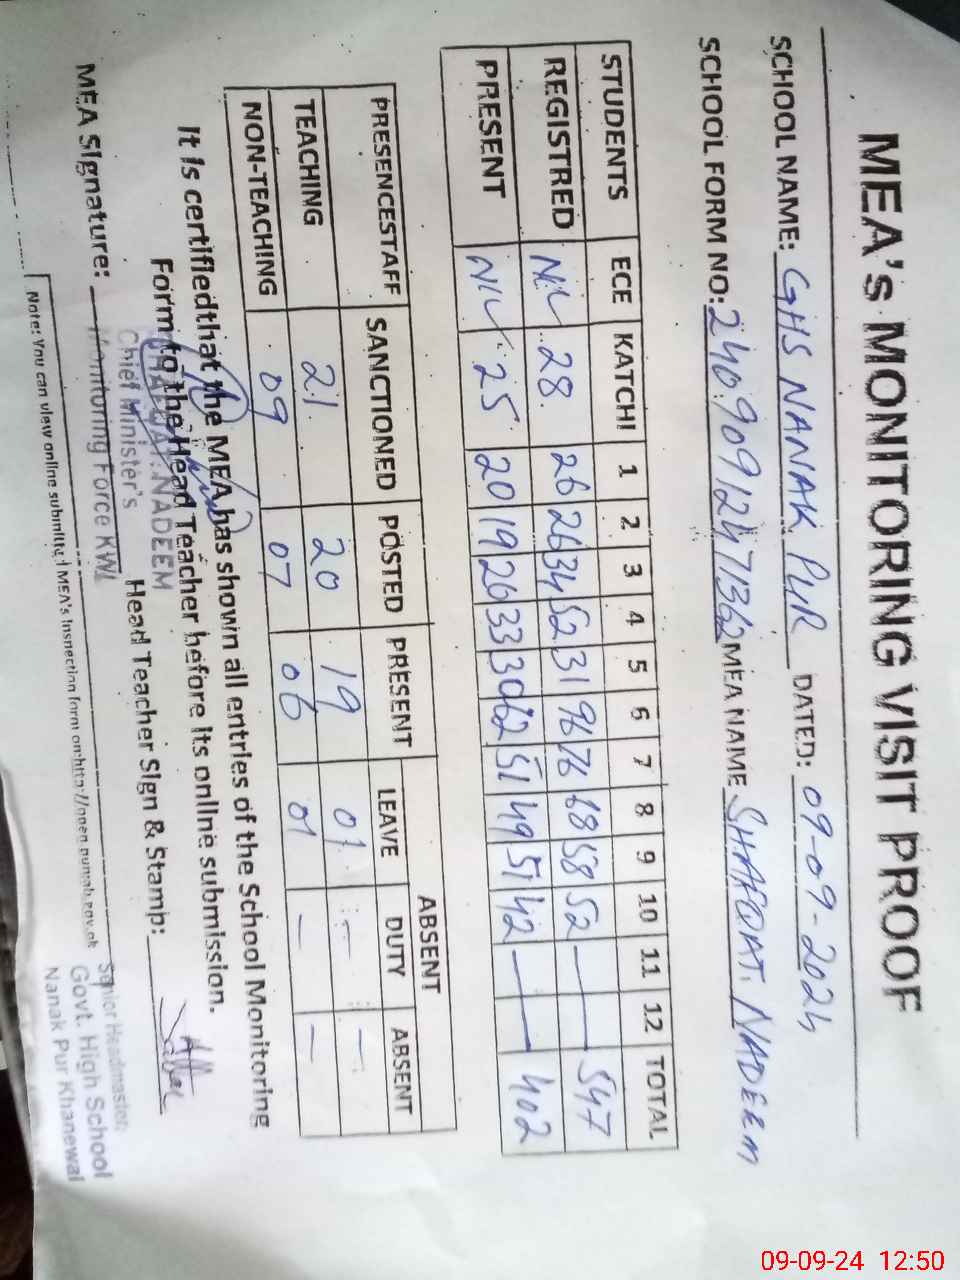 MEA's MONITORING VISIT PROOF
SCHOOL NAME: GHS NANAK PUR DATED: 09-09-2024
SCHOOL FORM NO: 24090912471362 MEA NAME SHAFQAT NADEEM
STUDENTS ECE KATCHI 1 2 3 4 5 6 7 8 9 10 11 12 TOTAL
REGISTRED NIL 28 26 26 34 52 31 96 76 68 58 52 — — 547
PRESENT NIL 25 20 19 20 33 30 62 51 49 51 42 — — 402
ABSENT
PRESENCESTAFF SANCTIONED POSTED PRESENT LEAVE DUTY ABSENT
TEACHING 21 20 19 01 — —
NON-TEACHING 09 07 06 01 — —
It is certifiedthat the MEA has shown all entries of the School Monitoring
Form to the Head Teacher before its online submission.
SHAFQAT NADEEM
Chief Minister's
Monitoring Force KWL
MEA Signature: Head Teacher Sign & Stamp:
Senior Headmaster
Govt. High School
Nanak Pur Khanewal
Note: You can view online submitted MEA's Inspection form on:http://open.punjab.gov.pk
09-09-24 12:50